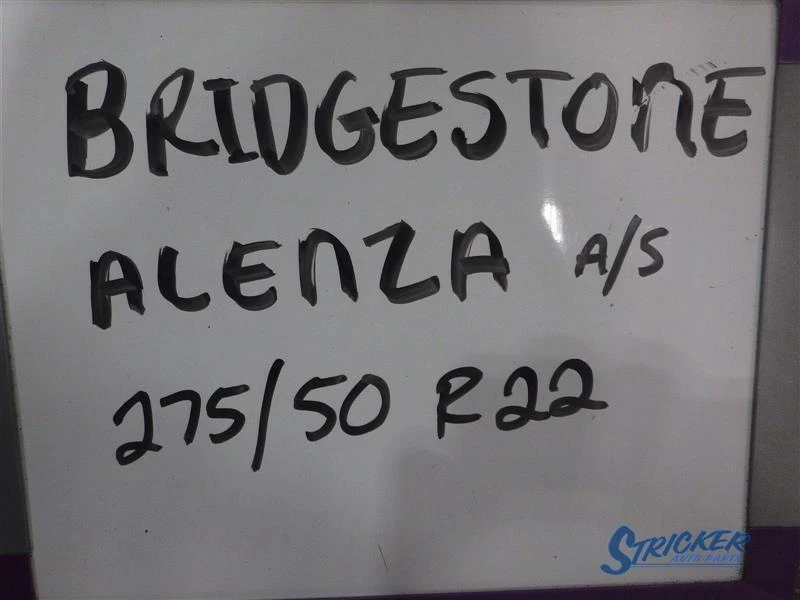 BRIDGESTONE
ALENZA A/S
275/50 R22
STRICKER
AUTO PARTS